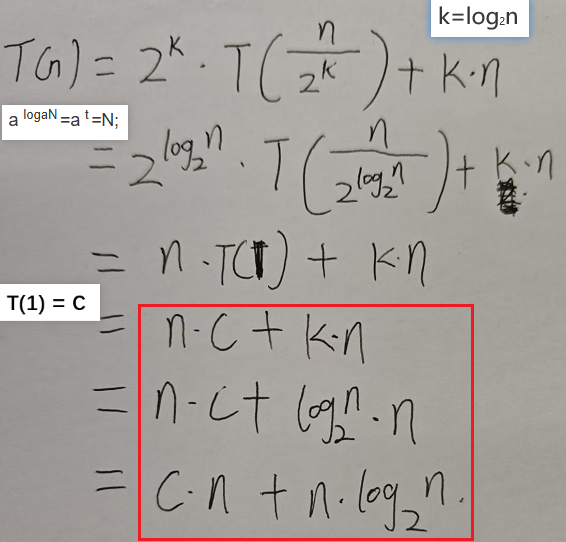 k=log₂n
T(n) = 2^k · T(n/2^k) + k·n
a^logaN=a^t=N;
= 2^log₂n · T(n/2^log₂n) + k·n
= n·T(1) + k·n
T(1) = C
= n·C + k·n
= n·C + log₂n · n
= C·n + n·log₂n.